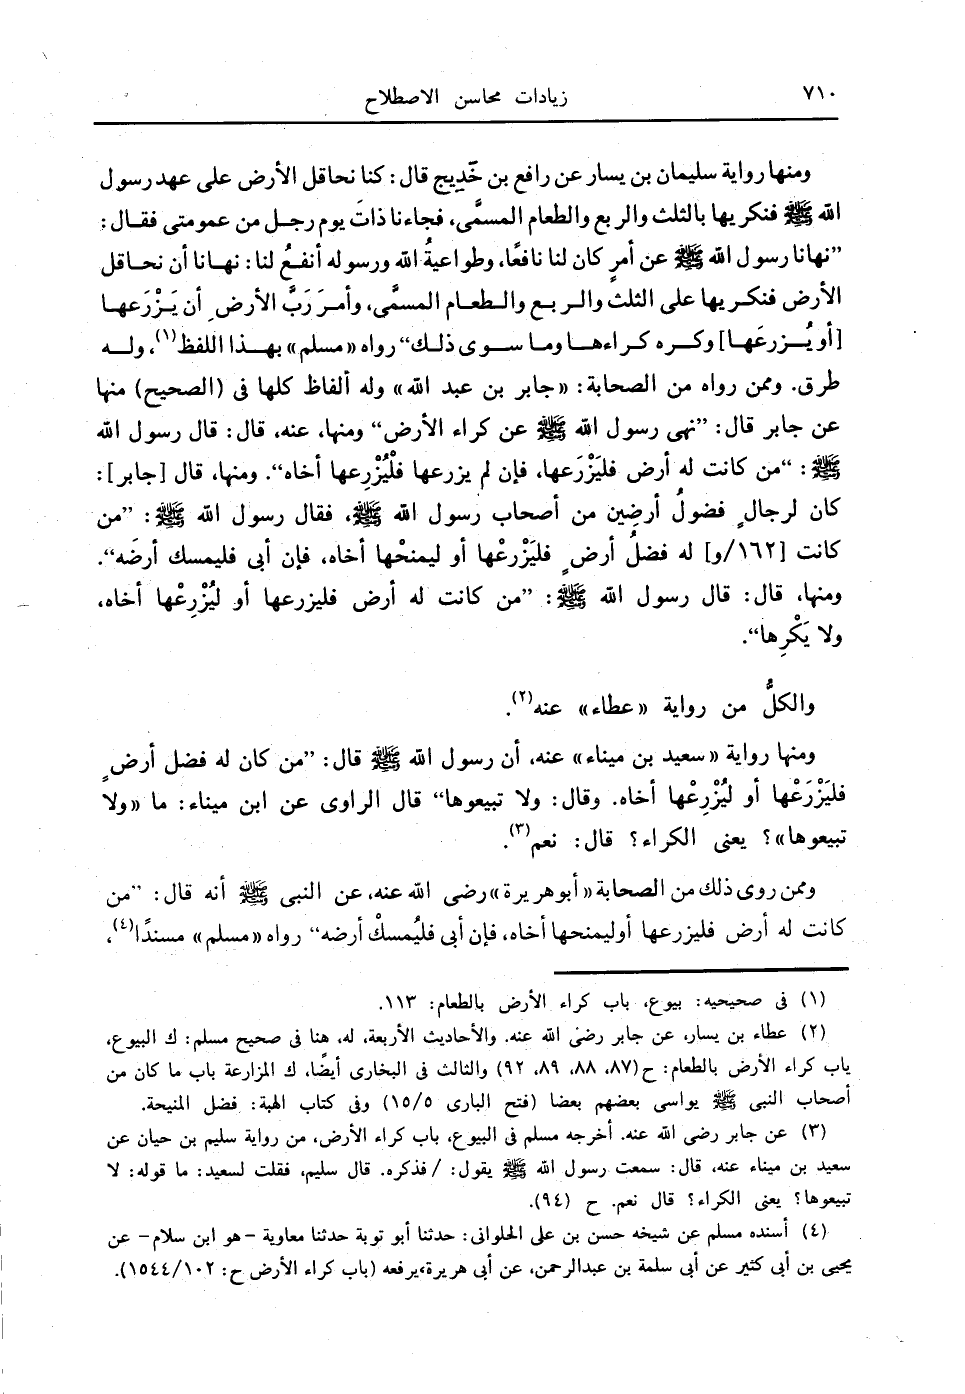 ٧١٠ زيادات محاسن الاصطلاح
ومنها رواية سليمان بن يسار عن رافع بن خَدِيج قال: كنا نحاقل الأرض على عهد رسول
الله ﷺ فنكريها بالثلث والربع والطعام المسمَّى، فجاءنا ذاتَ يوم رجل من عمومتى فقال:
”نهانا رسول الله ﷺ عن أمرٍ كان لنا نافعًا، وطواعيةُ الله ورسوله أنفعُ لنا: نهـانا أن نحـاقل
الأرض فنكريها على الثلث والـربـع والـطعـام المسمَّى، وأمـرَ رَبَّ الأرضِ أن يَـزْرَعهـا
[أو يُـزرعَهـا] وكـره كـراءهـا ومـا سـوى ذلـك“ رواه «مسلم» بهـذا اللفظ(١)، ولـه
طرق. وممن رواه من الصحابة: «جابر بن عبد الله» وله ألفاظ كلها فى (الصحيح) منها
عن جابر قال: ”نهى رسول الله ﷺ عن كراء الأرض“ ومنها، عنه، قال: قال رسول الله
ﷺ: ”من كانت له أرض فليَزْرَعها، فإن لم يزرعها فلْيُزْرِعها أخاه“. ومنها، قال [جابر]:
كان لرجالٍ فضولُ أرضِين من أصحاب رسول الله ﷺ، فقال رسول الله ﷺ: ”من
كانت [١٦٢/و] له فضلُ أرضٍ فليَزْرعْها أو ليمنحْها أخاه، فإن أبى فليمسك أرضَه“.
ومنها، قال: قال رسول الله ﷺ: ”من كانت له أرض فليزرعها أو ليُزْرِعْها أخاه،
ولا يَكْرِها“.
والكلُّ من رواية «عطاء» عنه(٢).
ومنها رواية «سعيد بن ميناء» عنه، أن رسول الله ﷺ قال: ”من كان له فضل أرضٍ
فليَزْرَعْها أو ليُزْرِعْها أخاه. وقال: ولا تبيعوها“ قال الراوى عن ابن ميناء: ما «ولا
تبيعوها»؟ يعنى الكراء؟ قال: نعم(٣).
وممن روى ذلك من الصحابة «أبو هريرة» رضى الله عنه، عن النبى ﷺ أنه قال: ”من
كانت له أرض فليزرعها أوليمنحها أخاه، فإن أبى فليُمسكْ أرضه“ رواه «مسلم» مسندًا(٤)،
(١) فى صحيحيه: بيوع، باب كراء الأرض بالطعام: ١١٣.
(٢) عطاء بن يسار، عن جابر رضى الله عنه. والأحاديث الأربعة، له، هنا فى صحيح مسلم: ك البيوع،
ياب كراء الأرض بالطعام: ح(٨٧، ٨٨، ٨٩، ٩٢) والثالث فى البخارى أيضًا، ك المزارعة باب ما كان من
أصحاب النبى ﷺ يواسى بعضهم بعضا (فتح البارى ١٥/٥) وفى كتاب الهبة: فضل المنيحة.
(٣) عن جابر رضى الله عنه. أخرجه مسلم فى البيوع، باب كراء الأرض، من رواية سليم بن حيان عن
سعيد بن ميناء عنه، قال: سمعت رسول الله ﷺ يقول: / فذكره. قال سليم، فقلت لسعيد: ما قوله: لا
تبيعوها؟ يعنى الكراء؟ قال نعم. ح (٩٤).
(٤) أسنده مسلم عن شيخه حسن بن على الحلوانى: حدثنا أبو توبة حدثنا معاوية -هو ابن سلام- عن
يحيى بن أبى كثير عن أبى سلمة بن عبدالرحمن، عن أبى هريرة، يرفعه (باب كراء الأرض ح: ١٠٢/١٥٤٤).